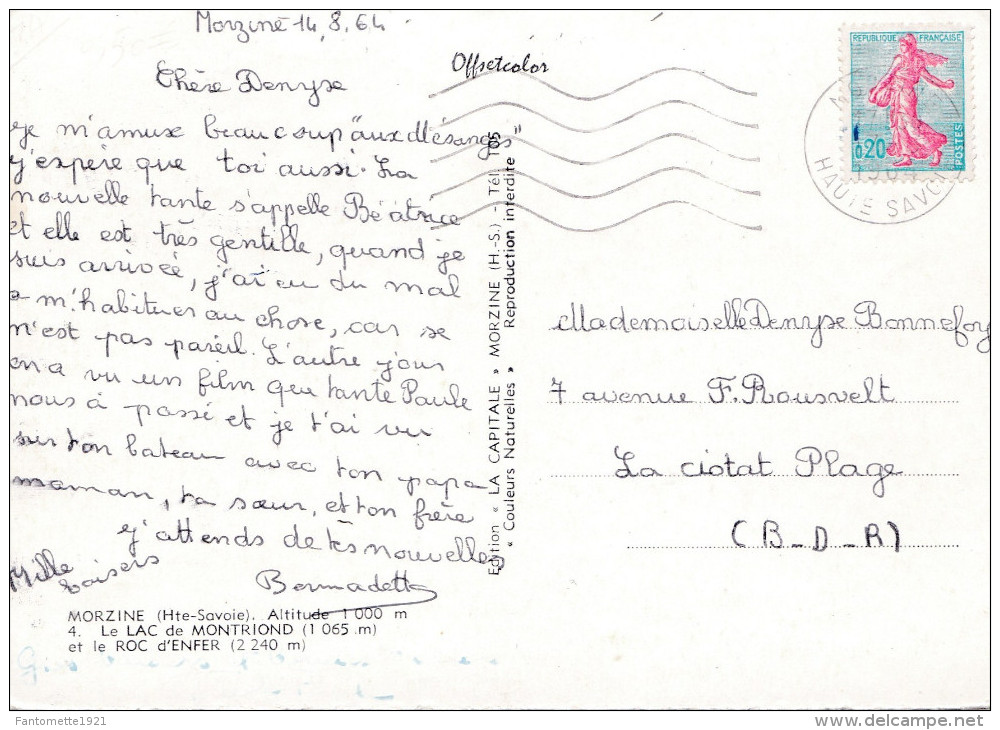 Morzine 14.8.64
Chère Denyse
je m'amuse beaucoup "aux Mésanges"
j'espère que toi aussi. La
nouvelle tante s'appelle Béatrice
et elle est très gentille, quand je
suis arrivée, j'ai eu du mal
a m'habituer au chose, car se
n'est pas pareil. L'autre jour
on a vu un film que tante Paule
nous à passé et je t'ai vu
sur ton bateau avec ton papa
maman, ta sœur, et ton frère
J'attends de tes nouvelles
Mille
baisers
Bernadette
MORZINE (Hte-Savoie). Altitude 1 000 m
4. Le LAC de MONTRIOND (1 065 m)
et le ROC d'ENFER (2 240 m)
Offsetcolor
Edition « LA CAPITALE » MORZINE (H.-S.) - Tél. 105
« Couleurs Naturelles » Reproduction interdite
REPUBLIQUE FRANÇAISE
0,20
POSTES
HAUTE SAVOIE
Mademoiselle Denyse Bonnefoy
7 avenue F. Rousvelt
La ciotat Plage
(B-D-R)
Fantomette1921
delcampe.net